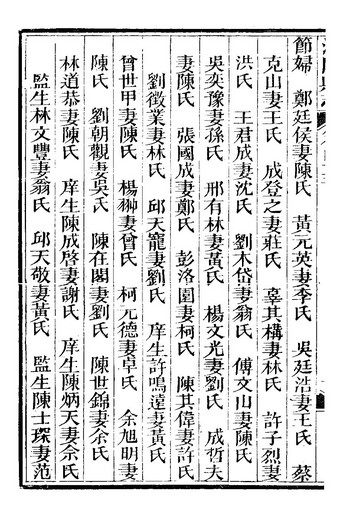 節婦　鄭廷侯妻陳氏　黃元英妻李氏　吳廷浩妻王氏　蔡
克山妻王氏　成登之妻莊氏　辜其構妻林氏　許子烈妻
洪氏　王君成妻沈氏　劉木岱妻翁氏　傅文山妻陳氏
吳奕豫妻孫氏　邢有林妻黃氏　楊文光妻劉氏　成哲夫
妻陳氏　張國成妻鄭氏　彭洛圖妻柯氏　陳其偉妻許氏
劉徵業妻林氏　邱天寵妻劉氏　庠生許鳴遠妻黃氏
曾世甲妻陳氏　楊翀妻曾氏　柯元德妻卓氏　余旭明妻
陳氏　劉朝觀妻吳氏　陳在閣妻劉氏　陳世錦妻余氏
林道恭妻陳氏　庠生陳成啓妻謝氏　庠生陳炳天妻余氏
監生林文豐妻翁氏　邱天敬妻黃氏　監生陳士琛妻范